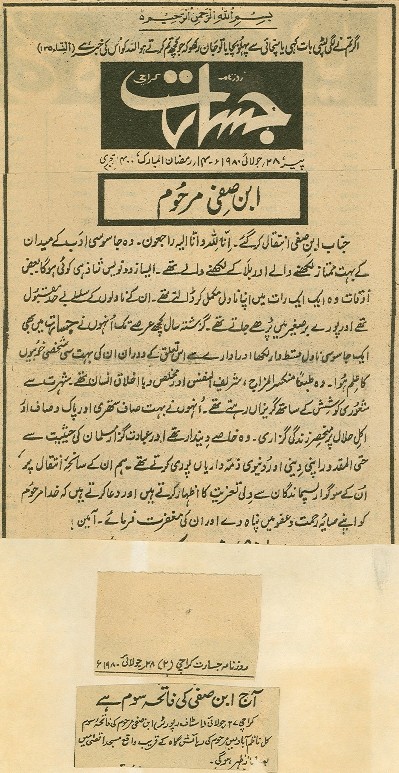 بِسْمِ اللهِ الرَّحْمٰنِ الرَّحِيْمِ
اگر تم نے لگی لپٹی بات کہی یا سچائی سے پہلو بچایا تو جان رکھو کہ جو کچھ تم کرتے ہو اللہ کو اس کی خبر ہے (النساء ۱۳۵)
روزنامہ
جسارت کراچی
پیر ۲۸، جولائی ۱۹۸۰ء ۱۴، رمضان المبارک ۱۴۰۰ ہجری
ابن صفی مرحوم
جناب ابن صفی انتقال کر گئے۔ انا للہ وانا الیہ راجعون۔ وہ جاسوسی ادب کے میدان
کے بہت ممتاز لکھنے والے اور بلا کے لکھنے والے تھے۔ ایسا زود نویس شاذ ہی کوئی ہو گا بعض
اوقات وہ ایک ایک رات میں اپنا ناول مکمل کر ڈالتے تھے۔ ان کے ناولوں کے سلسلے بے حد مقبول
تھے اور پورے برصغیر میں پڑھے جاتے تھے۔ گزشتہ سال کچھ عرصے تک انہوں نے جسارت میں بھی
ایک جاسوسی ناول قسط وار لکھا اور ادارے سے اس تعلق کے دوران ان کی بہت سی شخصی خوبیوں
کا علم ہوا۔ وہ طبعاً منکسر المزاج، شریف النفس اور مخلص و با اخلاق انسان تھے۔ شہرت سے
شعوری کوشش کے ساتھ گریزاں رہتے تھے۔ انہوں نے بہت صاف ستھری اور پاک و صاف اور
اکل حلال پر منحصر زندگی گزاری۔ وہ خاصے دیندار تھے اور عبادت گزار مسلمان کی حیثیت سے
حتی المقدور اپنی دینی اور دنیوی ذمہ داریاں پوری کرتے تھے۔ ہم ان کے سانحۂ انتقال پر
ان کے سوگوار پسماندگان سے دلی تعزیت کا اظہار کرتے ہیں اور دعا کرتے ہیں کہ خدا مرحوم
کو اپنے سایۂ رحمت و عفو میں پناہ دے اور ان کی مغفرت فرمائے۔ آمین!
روزنامہ جسارت کراچی (۲) ۲۸، جولائی ۱۹۸۰ء
آج ابن صفی کی فاتحہ سوم ہے
کراچی ۲۷ جولائی (اسٹاف رپورٹر) ابن صفی مرحوم کی فاتحہ سوم
کل ناظم آباد میں مرحوم کی رہائش گاہ کے قریب واقع مسجد اقصیٰ میں
بعد نماز ظہر ہوگی۔